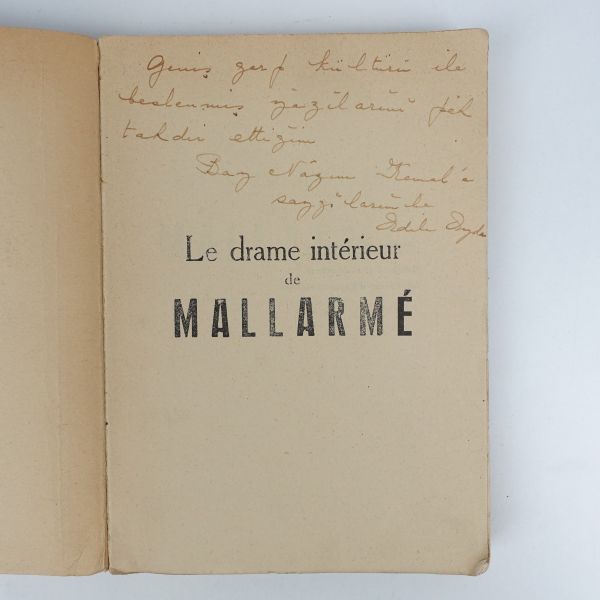 Geniş garp kültürü ile
beslenmiş yazılarını pek
takdir ettiğim
Bay Nâzım Kemal'e
saygılarımla
Adile Ayda
Le drame intérieur
de
MALLARMÉ